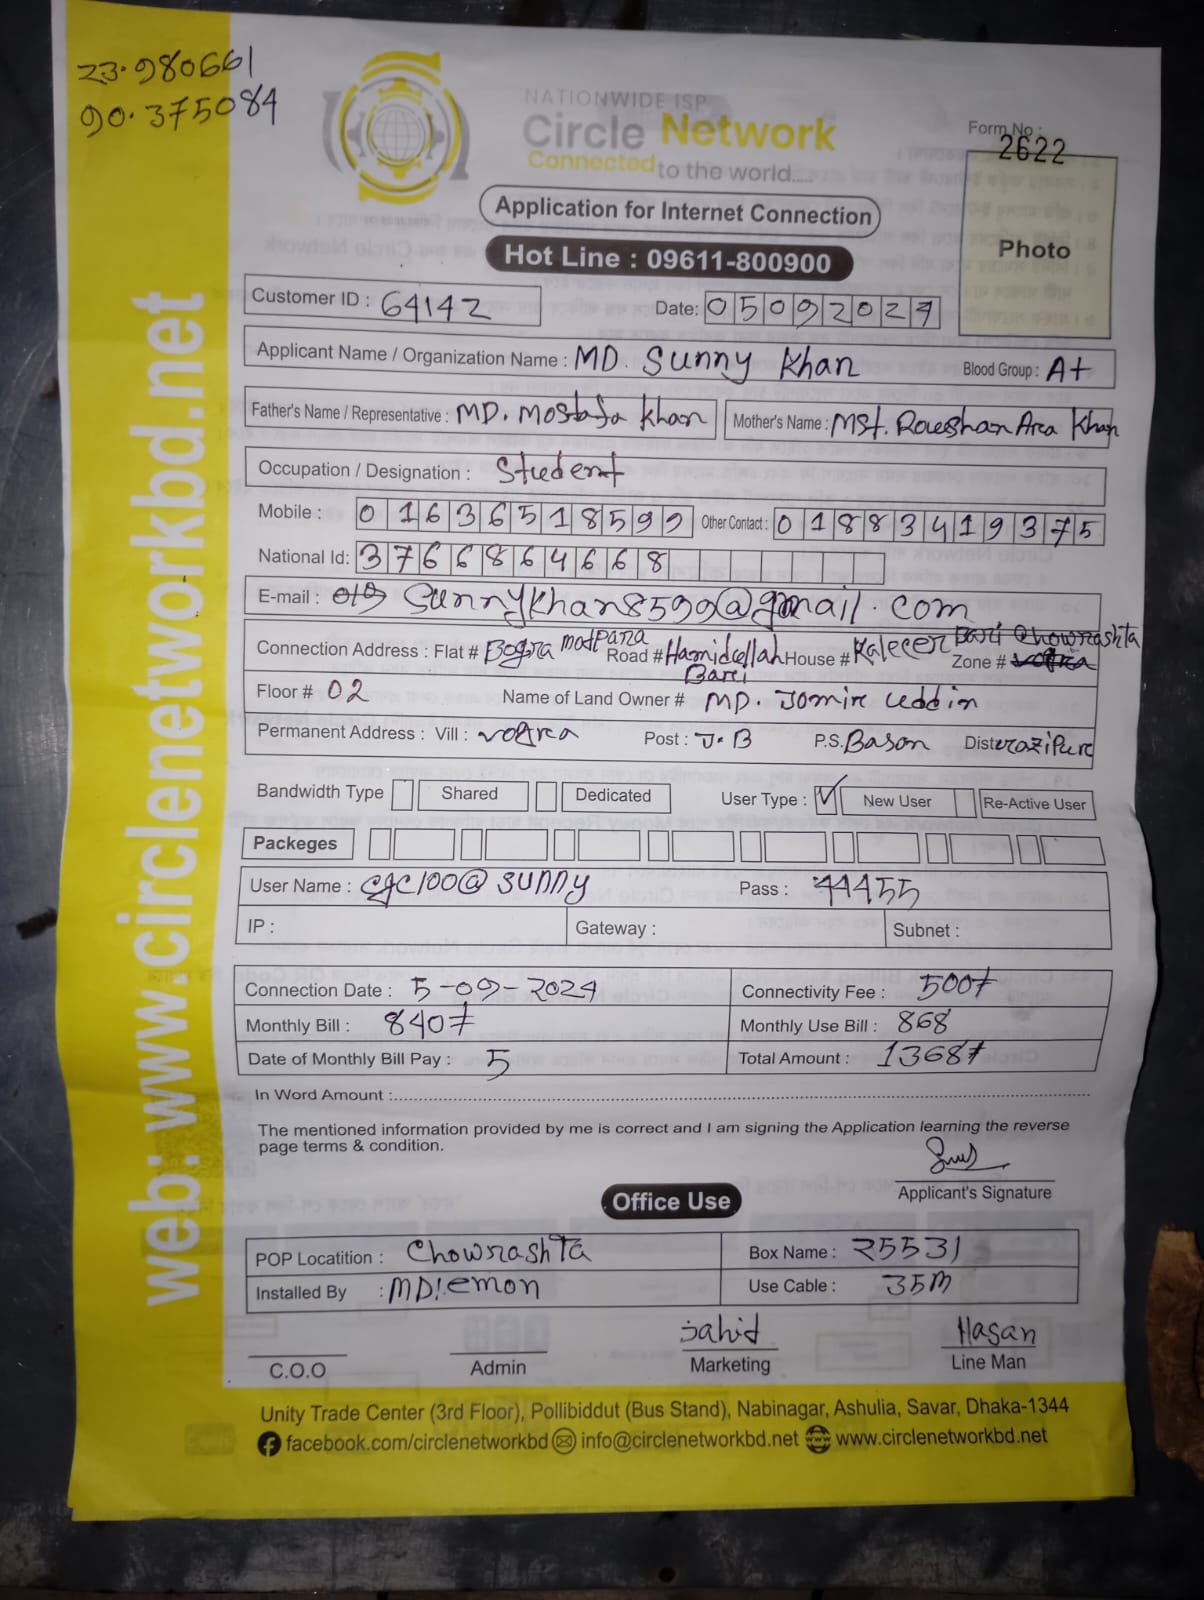 23.980661
90.375084
NATIONWIDE ISP
Circle Network
Connected to the world.....
Form No :
2622
Photo
Application for Internet Connection
Hot Line : 09611-800900
web: www.circlenetworkbd.net
Customer ID : 64142
Date: 05092024
Applicant Name / Organization Name : MD. Sunny Khan Blood Group : A+
Father's Name / Representative : MD. Mostafa Khan Mother's Name : Mst. Roushan Ara Khan
Occupation / Designation : Student
Mobile : 01636518599 Other Contact : 01883419375
National Id: 3766864668
E-mail : Sunnykhan8599@gmail.com
Connection Address : Flat # Bogra Motpara Road # Hamidullah Bari House # Kaleeer Bari Zone # Chowrashta
Floor # 02 Name of Land Owner # MD. Jomir Uddin
Permanent Address : Vill : Vogra Post : J.B P.S. Bason Dist Gazipur
Bandwidth Type Shared Dedicated User Type : ✓ New User Re-Active User
Packeges
User Name : CJC100@sunny Pass : 44455
IP : Gateway : Subnet :
Connection Date : 5-09-2024 Connectivity Fee : 500/-
Monthly Bill : 840/- Monthly Use Bill : 868
Date of Monthly Bill Pay : 5 Total Amount : 1368/-
In Word Amount :
The mentioned information provided by me is correct and I am signing the Application learning the reverse
page terms & condition.
Applicant's Signature
Office Use
POP Locatition : Chowrashta Box Name : 25531
Installed By : MD lemon Use Cable : 35M
sahid Hasan
C.O.O Admin Marketing Line Man
Unity Trade Center (3rd Floor), Pollibiddut (Bus Stand), Nabinagar, Ashulia, Savar, Dhaka-1344
facebook.com/circlenetworkbd info@circlenetworkbd.net www.circlenetworkbd.net